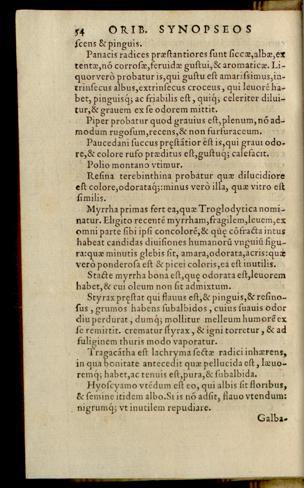 54 ORIB. SYNOPSEOS
scens & pinguis.
Panacis radices præstantiores sunt siccæ, albæ, ex
tentæ, nō corrosæ, feruidæ gustui, & aromaticæ. Li-
quor verò probatur is, qui gustu est amarissimus, in-
trinsecus albus, extrinsecus croceus, qui leuorē ha-
bet, pinguisq́; ac friabilis est, quiq́; celeriter dilui-
tur, & grauem ex se odorem mittit.
Piper probatur quod grauius est, plenum, nō ad-
modum rugosum, recens, & non furfuraceum.
Paucedani succus præstātior est is, qui graui odo-
re, & colore rufo præditus est, gustuq́; calefacit.
Polio montano vtimur.
Resina terebinthina probatur quæ dilucidiore
est colore, odorataq́;: minus verò illa, quæ vitro est
similis.
Myrrha primas fert ea, quæ Troglodytica nomi-
natur. Eligito recentē myrrham, fragilem, leuem, ex
omni parte sibi ipsi concolorē, & quę cōfracta intus
habeat candidas diuisiones humanorū vnguiū figu-
ra: quæ minutis glebis sit, amara, odorata, acris: quæ
verò ponderosa est & picei coloris, ea est inutilis.
Stacte myrrha bona est, que odorata est, leuorem
habet, & cui oleum non sit admixtum.
Styrax prestat qui flauus est, & pinguis, & resino-
sus, grumos habens subalbidos, cuius suauis odor
diu perdurat, dumq́; mollitur melleum humorē ex
se remittit. crematur styrax, & igni torretur, & ad
fuliginem thuris modo vaporatur.
Tragacātha est lachryma sectæ radici inhærens,
in qua bonitate antecedit quæ pellucida est, læuo-
remq́; habet, ac tenuis est, pura, & subalbida.
Hyoscyamo vtēdum est eo, qui albis sit floribus,
& semine itidem albo. Si is nō adsit, flauo vtendum:
nigrumq́; vt inutilem repudiare.
Galba-